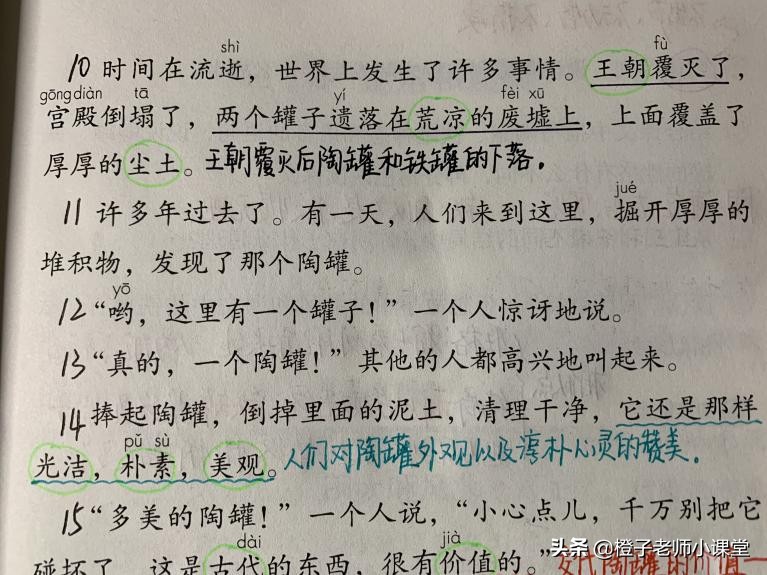 shì fù
10 时间在流逝，世界上发生了许多事情。王朝覆灭了，
gōng diàn tā yí fèi xū
宫殿倒塌了，两个罐子遗落在荒凉的废墟上，上面覆盖了
厚厚的尘土。王朝覆灭后陶罐和铁罐的下落。
jué
11 许多年过去了。有一天，人们来到这里，掘开厚厚的
堆积物，发现了那个陶罐。
yō
12 “哟，这里有一个罐子！”一个人惊讶地说。
13 “真的，一个陶罐！”其他的人都高兴地叫起来。
14 捧起陶罐，倒掉里面的泥土，清理干净，它还是那样
pǔ sù
光洁，朴素，美观。人们对陶罐外观以及淳朴心灵的赞美。
15 “多美的陶罐！”一个人说，“小心点儿，千万别把它
dài jià
碰坏了，这是古代的东西，很有价值的。”
头条 @橙子老师小课堂